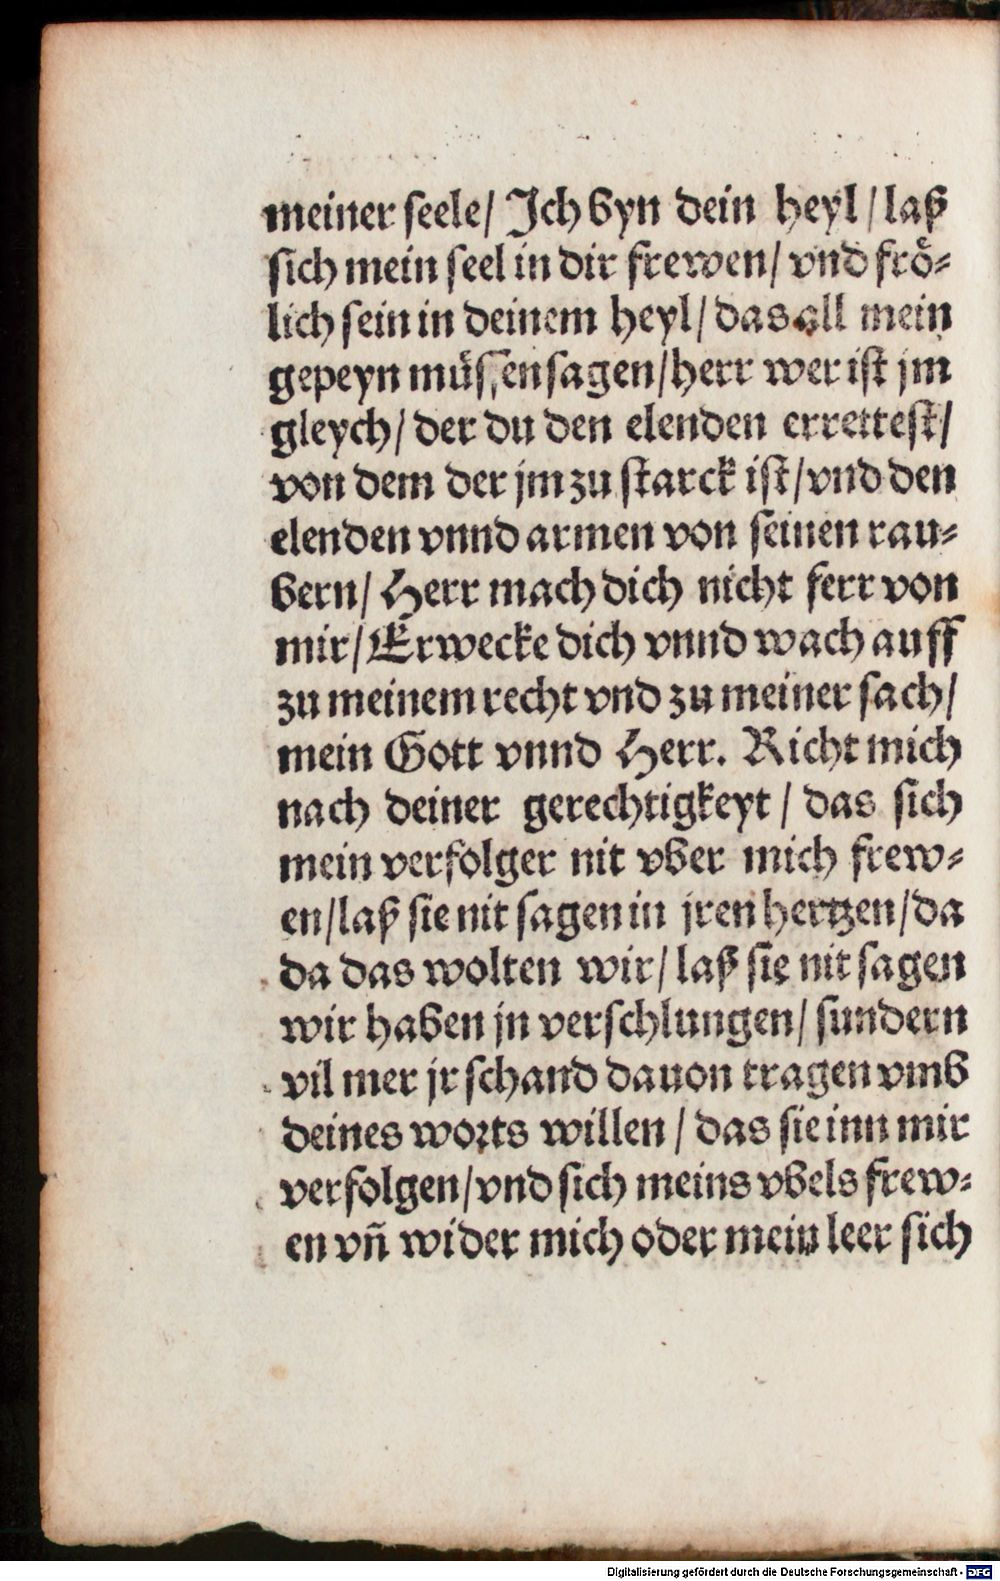 meiner seele/ Ich byn dein heyl/ laß
sich mein seel in dir frewen/ vnd frö⸗
lich sein in deinem heyl/ das all mein
gepeyn müssen sagen/ herr wer ist jm
gleych/ der du den elenden errettest/
von dem der jm zu starck ist/ vnd den
elenden vnnd armen von seinen rau⸗
bern/ Herr mach dich nicht ferr von
mir/ Erwecke dich vnnd wach auff
zu meinem recht vnd zu meiner sach/
mein Gott vnnd Herr. Richt mich
nach deiner gerechtigkeyt/ das sich
mein verfolger nit vber mich frew⸗
en/ laß sie nit sagen in jren hertzen/ da
da das wolten wir/ laß sie nit sagen
wir haben jn verschlungen/ sundern
vil mer jr schand dauon tragen vmb
deines worts willen/ das sie inn mir
verfolgen/ vnd sich meins vbels frew⸗
en vñ wider mich oder mein leer sich
Digitalisierung gefördert durch die Deutsche Forschungsgemeinschaft - DFG